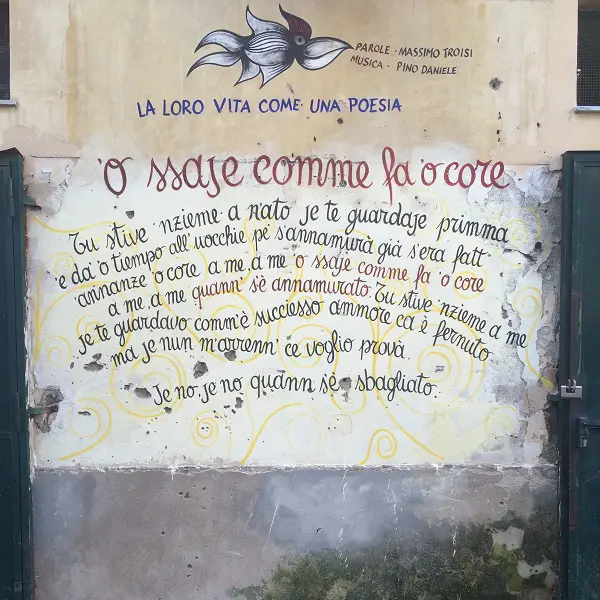 PAROLE · MASSIMO TROISI
MUSICA · PINO DANIELE
LA LORO VITA COME UNA POESIA
'O ssaje comme fa 'o core
Tu stive 'nzieme a n'ato je te guardaje primma
e da' 'o tiempo all'uocchie pe' s'annamurà già s'era fatt'
annanze 'o core a me, a me 'o ssaje comme fa 'o core
a me, a me quann' s'è annamurato. Tu stive 'nzieme a me
je te guardavo comm'è successo ammore ca è fernuto
ma je nun m'arrenn' ce voglio provà
Je no, je no quann s'è sbagliato.